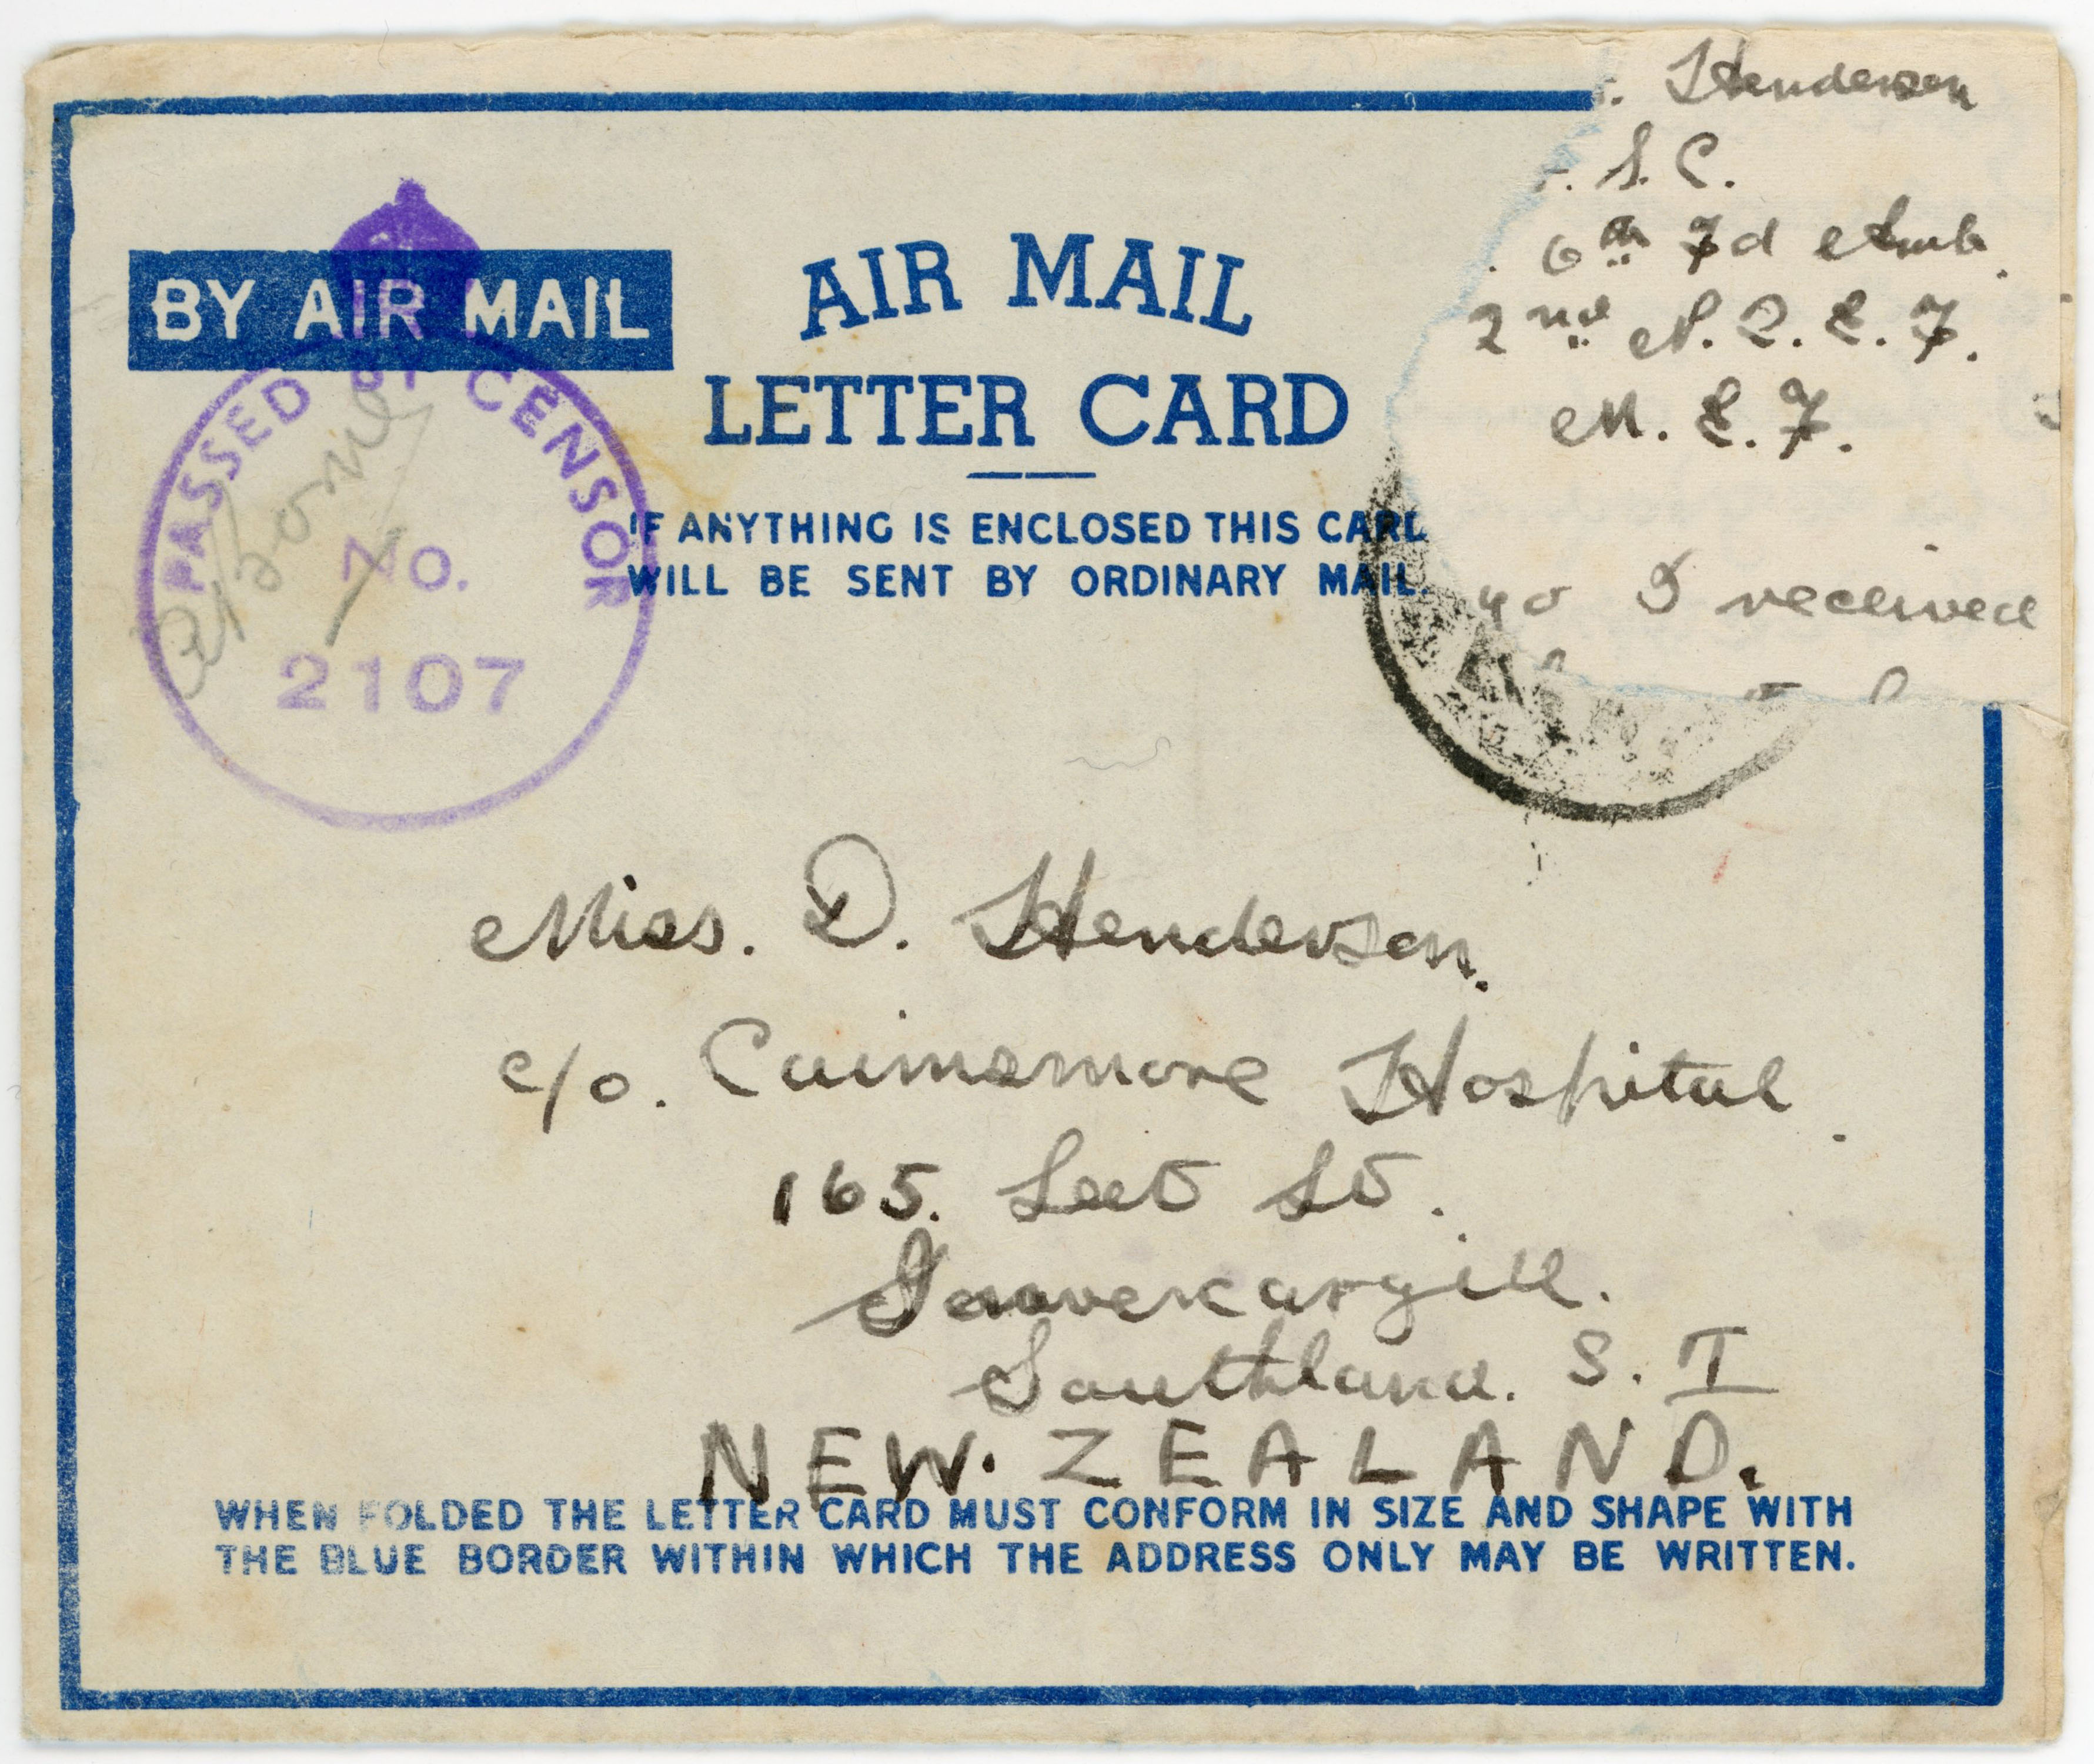 Henderson
S. C.
6th Fd Amb.
2nd N. Z. E. F.
M. E. F.
I received
BY AIR MAIL
AIR MAIL
LETTER CARD
IF ANYTHING IS ENCLOSED THIS CARD
WILL BE SENT BY ORDINARY MAIL.
PASSED BY CENSOR
No.
2107
Miss. D. Henderson.
c/o. Cairnsmore Hospital.
165. Leet St.
Invercargill.
Southland. S. I
NEW. ZEALAND.
WHEN FOLDED THE LETTER CARD MUST CONFORM IN SIZE AND SHAPE WITH
THE BLUE BORDER WITHIN WHICH THE ADDRESS ONLY MAY BE WRITTEN.